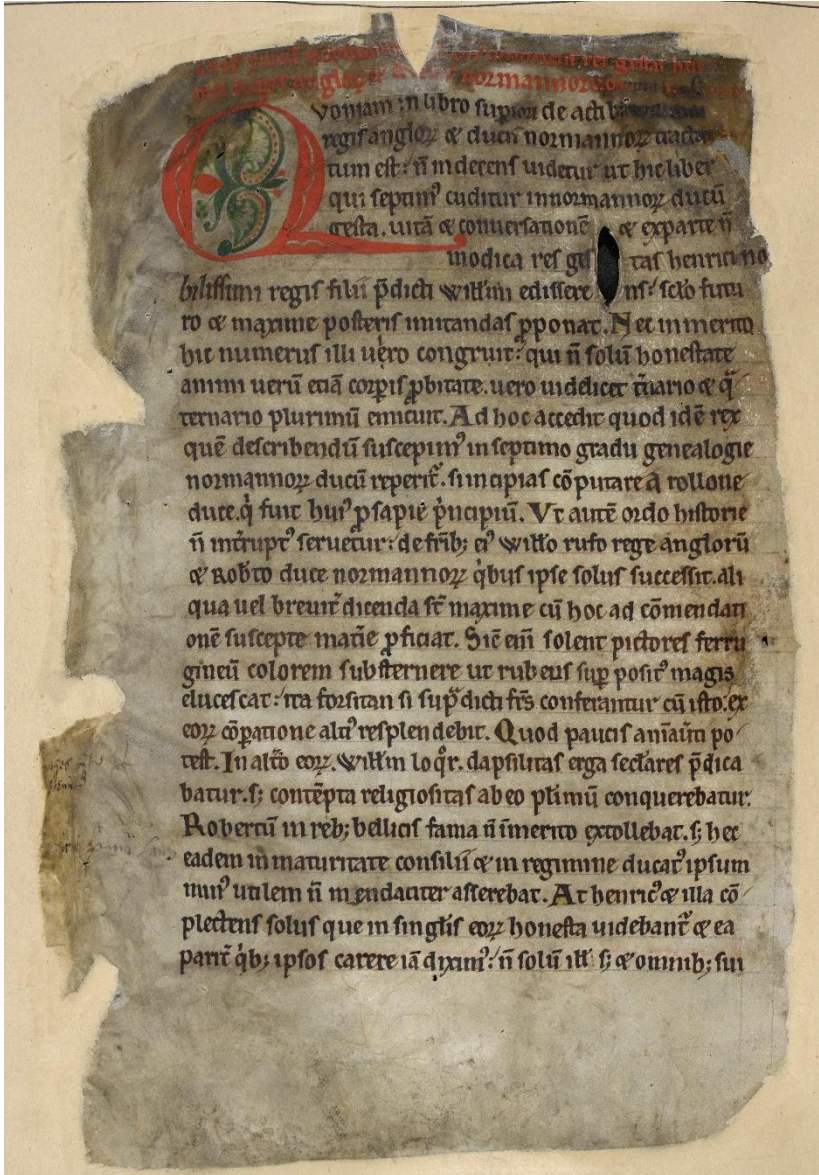 regis angloꝝ ⁊ normannoꝝ
Quoniam in libro superiori de actib
regis angloꝝ ⁊ ducū normannoꝝ tracta
tum est: ñ indecens uidetur ut hic liber
qui septimꝰ cuditur in normannoꝝ ducū
gesta. uitā ⁊ conuersationē ⁊ ex parte ñ
modica res ges tas henrici no
bilissimi regis filii p̄dicti Willīmi edissere ns: sc̄lo futu
ro ⁊ maxime posteris imitandas ꝓponat. Nec inmerito
hic numerus illi uẻro congruit: qui ñ solū honestate
animi uerū etiā corpis ꝓbitate. uero uidelicet t̄nario ⁊ q̄
ternario plurimū enicuit. Ad hoc accedit quod idē rex
quē describendū suscepimꝰ in septimo gradu genealogie
normannoꝝ ducū reperit᷑. si incipias cōputare a rollone
duce. q̇ fuit huiꝰ ꝓsapiē ṗncipiū. Vt autē ordo historie
ñ int̄ruptꝰ seruetur: de fr̄ib; eiꝰ Willō rufo rege anglorū
⁊ Rob̄to duce normannoꝝ q̇bus ipse solus successit. ali
qua uel breuit᷑ dicenda st̄ maxime cū hoc ad cōmendati
onē suscepte mat̄ie ꝓficiat. Sic eni solent pictores ferru
gineū colorem substernere ut rubeus suꝑ positꝰ magis
elucescat: ita forsitan si sup̄dicti fr̄s conferantur cū isto. ex
eoꝝ cōparatione altiꝰ resplendebit. Quod paucis aniāuti po
test. In alt̄o eoꝝ. Willm̄ loq̇r. dapsilitas erga sec̄lares p̄dica
batur. s; contēpta religiositas ab eo pl̄imū conquerebatur.
Robertū in reb; bellicis fama ñ īmerito extollebat. s; hec
eadem in maturitate consilii ⁊ in regimine ducatꝰ ipsum
minꝰ utilem ñ mendaciter asserebat. At henricꝰ ⁊ illa cō
plectens solus que in singl̄is eoꝝ honesta uidebant᷑ ⁊ ea
parit᷑ q̇b; ipsos carere iā diximꝰ: ñ solū ill̄ s; ⁊ omnib; sui